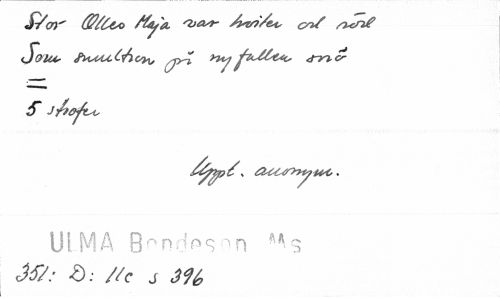 Stor Olles Maja var hviter och röd
Som smultron på nyfallen snö
=
5 strofer
Uppt. anonym.
ULMA Bondeson Ms
351: D: 11c s 396